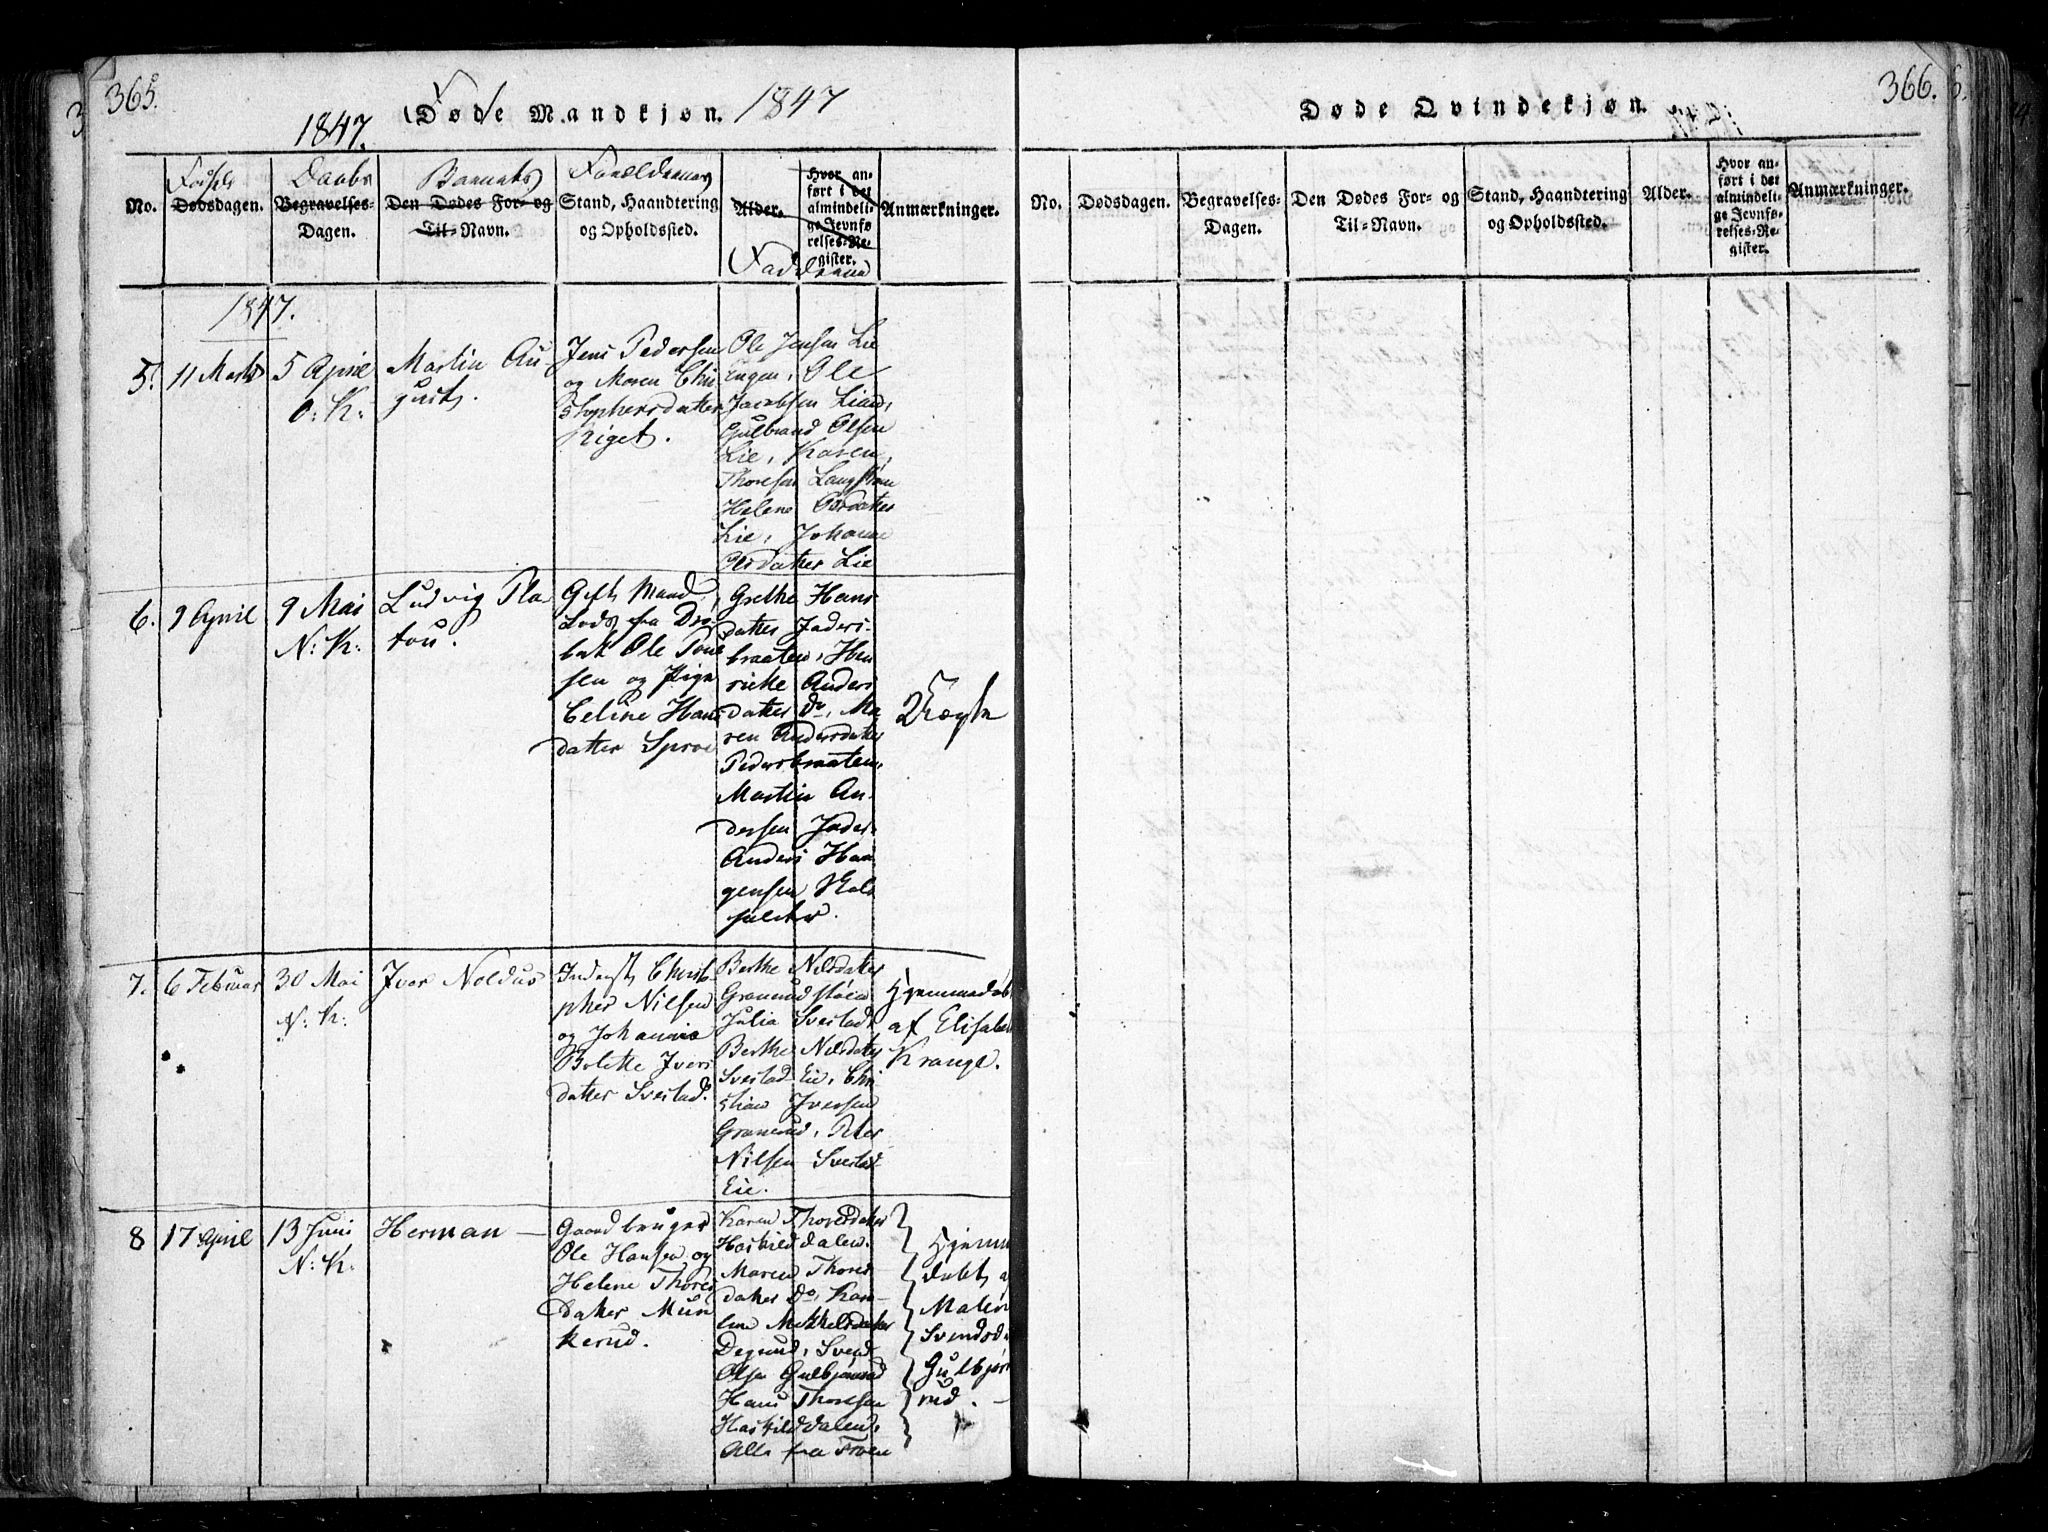 365.
Fødte Mandkjøn. 1847
1847.
No.
Fødsels
Dødsdagen.
Daabs
Begravelses-
Dagen.
Barnets
Den Dødes For- og
Til-Navn.
Forældrenes
Stand, Haandtering
og Opholdssted.
Alder.
Hvor an-
ført i det
almindeli-
ge Jevnfø-
relses-Re-
gister.
Faddrene
Anmærkninger.
1847.
5.
11 Marts
5 April
O: K:
Martin Au-
gust.
Jens Pedersen
og Maren Chri
stophersdatter
Riget.
Ole Jensen Lie
Engen, Ole
Jacobsen Lian,
Gulbrand Olsen
Lie, Karen
Thoresen
Helene Olsdatter
Lie, Johanne
Olsdatter Lie
6.
9 April
9 Mai
N: K:
Ludvig Pla-
tou.
Gift Mand,
Lods fra Drø-
bak Ole Tøne
sen og Pige
Celine Hans
datter Sproe
Grethe Hans
datter Faders-
braaten, Hen
rikke Anders
datter Do, Ma-
ren Andersdatter
Pedersbraaten,
Martin An-
dersen
Anders Haa-
gensen
7.
6 Februar
30 Mai
N: K:
Iver Noldus
Inderst Christo
pher Nilsen
og Johanne
Bolette Ivers
datter Svestad.
Berthe Nilsdatter
Granerudstøen
Julia Svestad,
Berthe Nilsdatter
Svestad Eie, Chri
stian Iversen
Granerud, Peter
Nilsen Svestad
Eie.
Hjemmedøbt
af Elisabeth
Krange.
8
17 April
13 Juni
N: K:
Herman —
Gaardbruger
Ole Hansen og
Helene Thores
datter Mun
kerud.
Karen Thoresdatter
Haskilddalen.
Maren Thores
datter Do, Karo-
line Mikkelsdatter
Degrud, Svend
Olsen Gulbjørnrud
Hans Thoresen
Haskilddalen,
Alle fra Froen
Hjemme
døbt a
Malene
Svendsd
Gulbjørn
rud. —
366.
Døde Qvindekjøn.
1847
No.
Dødsdagen.
Begravelses-
Dagen.
Den Dødes For- og
Til-Navn.
Stand, Haandtering
og Opholdssted.
Alder.
Hvor an-
ført i det
almindeli-
ge Jevnfø-
relses-Re-
gister.
Anmærkninger.